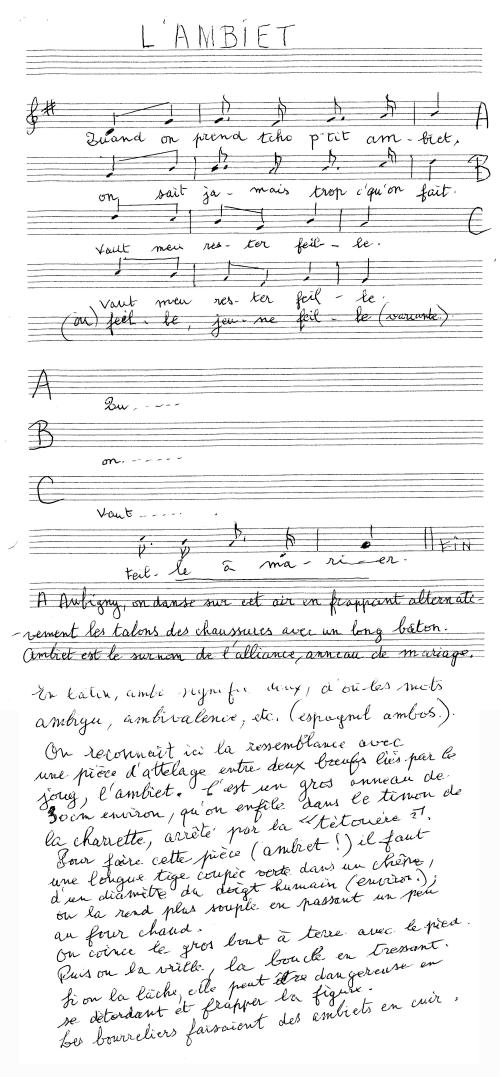 L'AMBIET
Quand on prend tcho p'tit am - biet, A
on sait ja - mais trop c'qu'on fait. B
Vaut meu res - ter feil - le. C
Vaut meu res - ter feil - le.
(ou) feil - le, jeu - ne feil - le (variante)
A
Qu. - - - -
B
on. - - - - -
C
Vaut - - - - -
Feil - le à ma - ri - er. FIN
A Aubigny, on danse sur cet air en frappant alternati-
-vement les talons des chaussures avec un long bâton.
Ambiet est le surnom de l'alliance, anneau de mariage.
En latin, ambi signifie deux, d'où les mots
ambigu, ambivalence, etc. (espagnol ambos).
On reconnaît ici la ressemblance avec
une pièce d'attelage entre deux bœufs liés par le
joug, l'ambiet. C'est un gros anneau de
30cm environ, qu'on enfile dans le timon de
la charrette, arrêté par la "têtouère".
Pour faire cette pièce (ambiet !) il faut
une longue tige coupée verte dans un chêne,
d'un diamètre du doigt humain (environ);
on la rend plus souple en passant un peu
au four chaud.
On coince le gros bout à terre avec le pied.
Puis on la vrille, la boucle en tressant.
Si on la lâche, elle peut être dangereuse en
se détordant et frapper la figure.
Les bourreliers faisaient des ambiets en cuir.